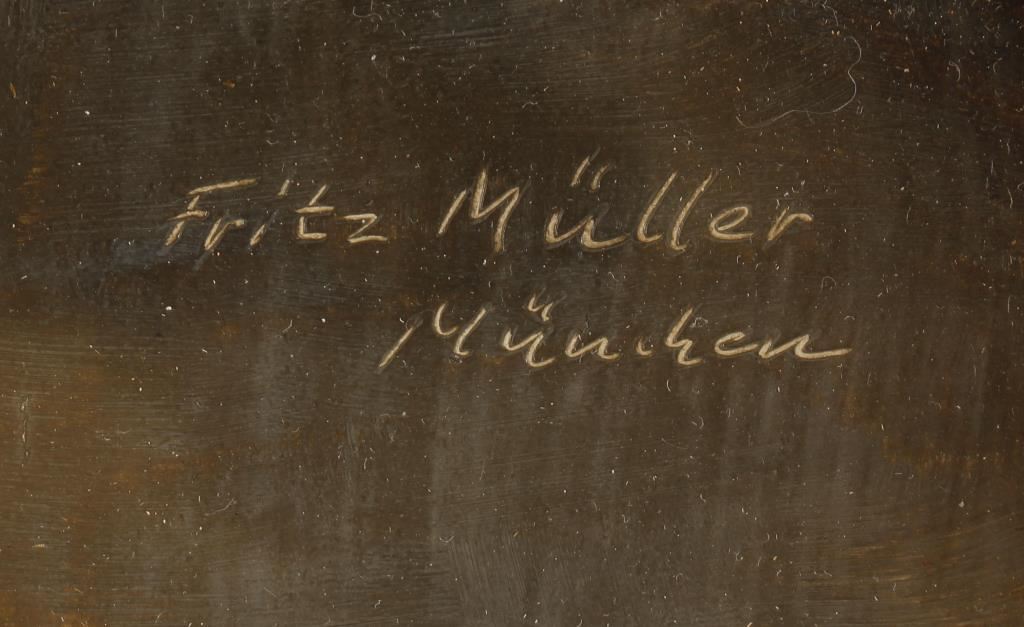 Fritz Müller
München